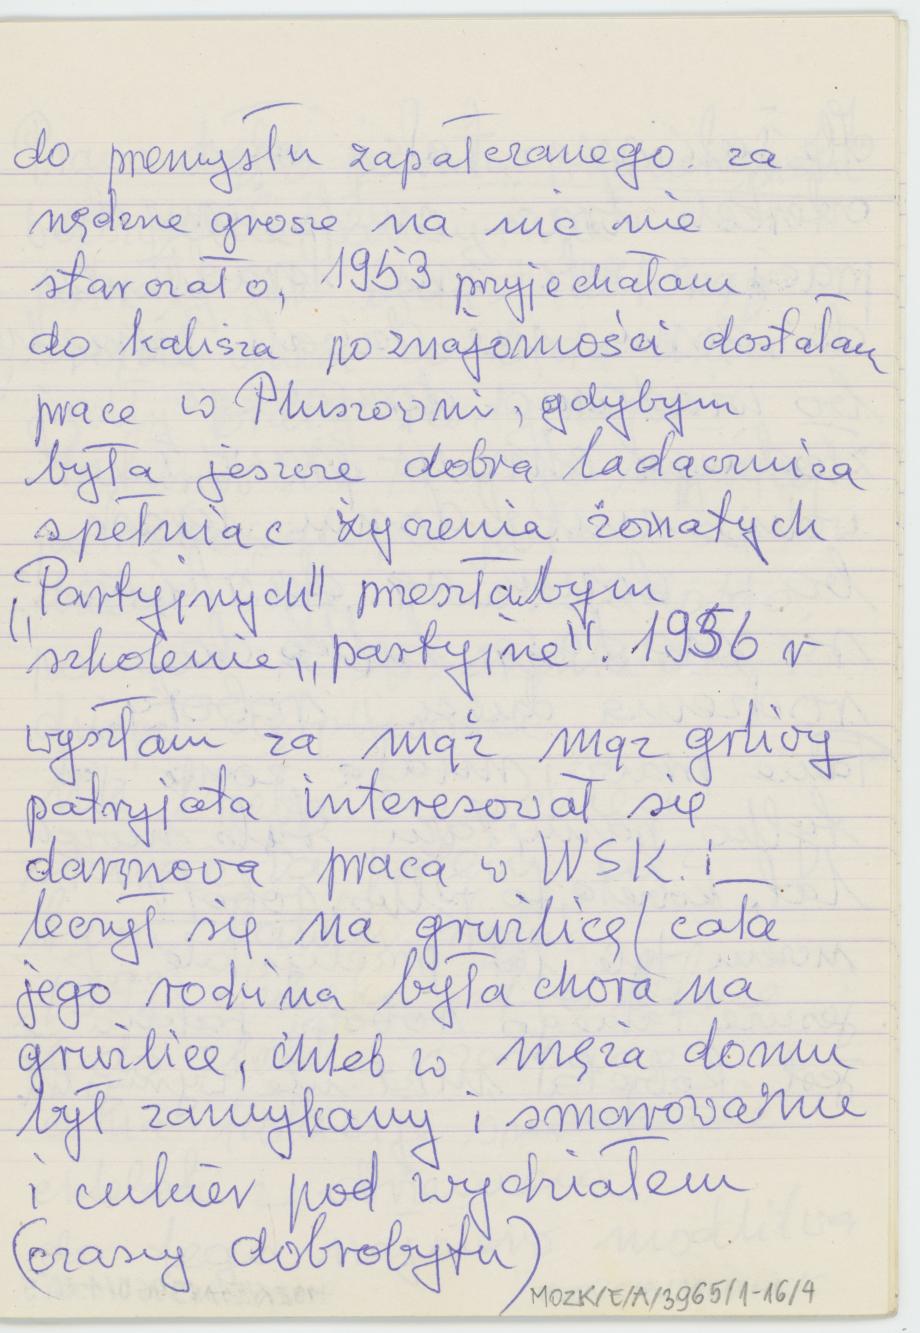 do przemysłu zapałczanego za
nędzne grosze na nic nie
starczało, 1953 przyjechałam
do kalisza po znajomości dostałam
prace w Pluszowni, gdybym
była jeszcze dobrą ladacznica
spełniac życzenia żonatych
„Partyjnych" przeszłabym
szkolenie „partyjne". 1956 r
wyszłam za mąż mąż grliwy
patryjota interesował się
darmową praca w WSK. i
leczył się na gruźlicę (cała
jego rodzina była chora na
gruźlice, chleb w męża domu
był zamykany i smarowanie
i cukier pod wydziałem
(czasy dobrobytu)
MOZK/E/A/3965/1-16/4